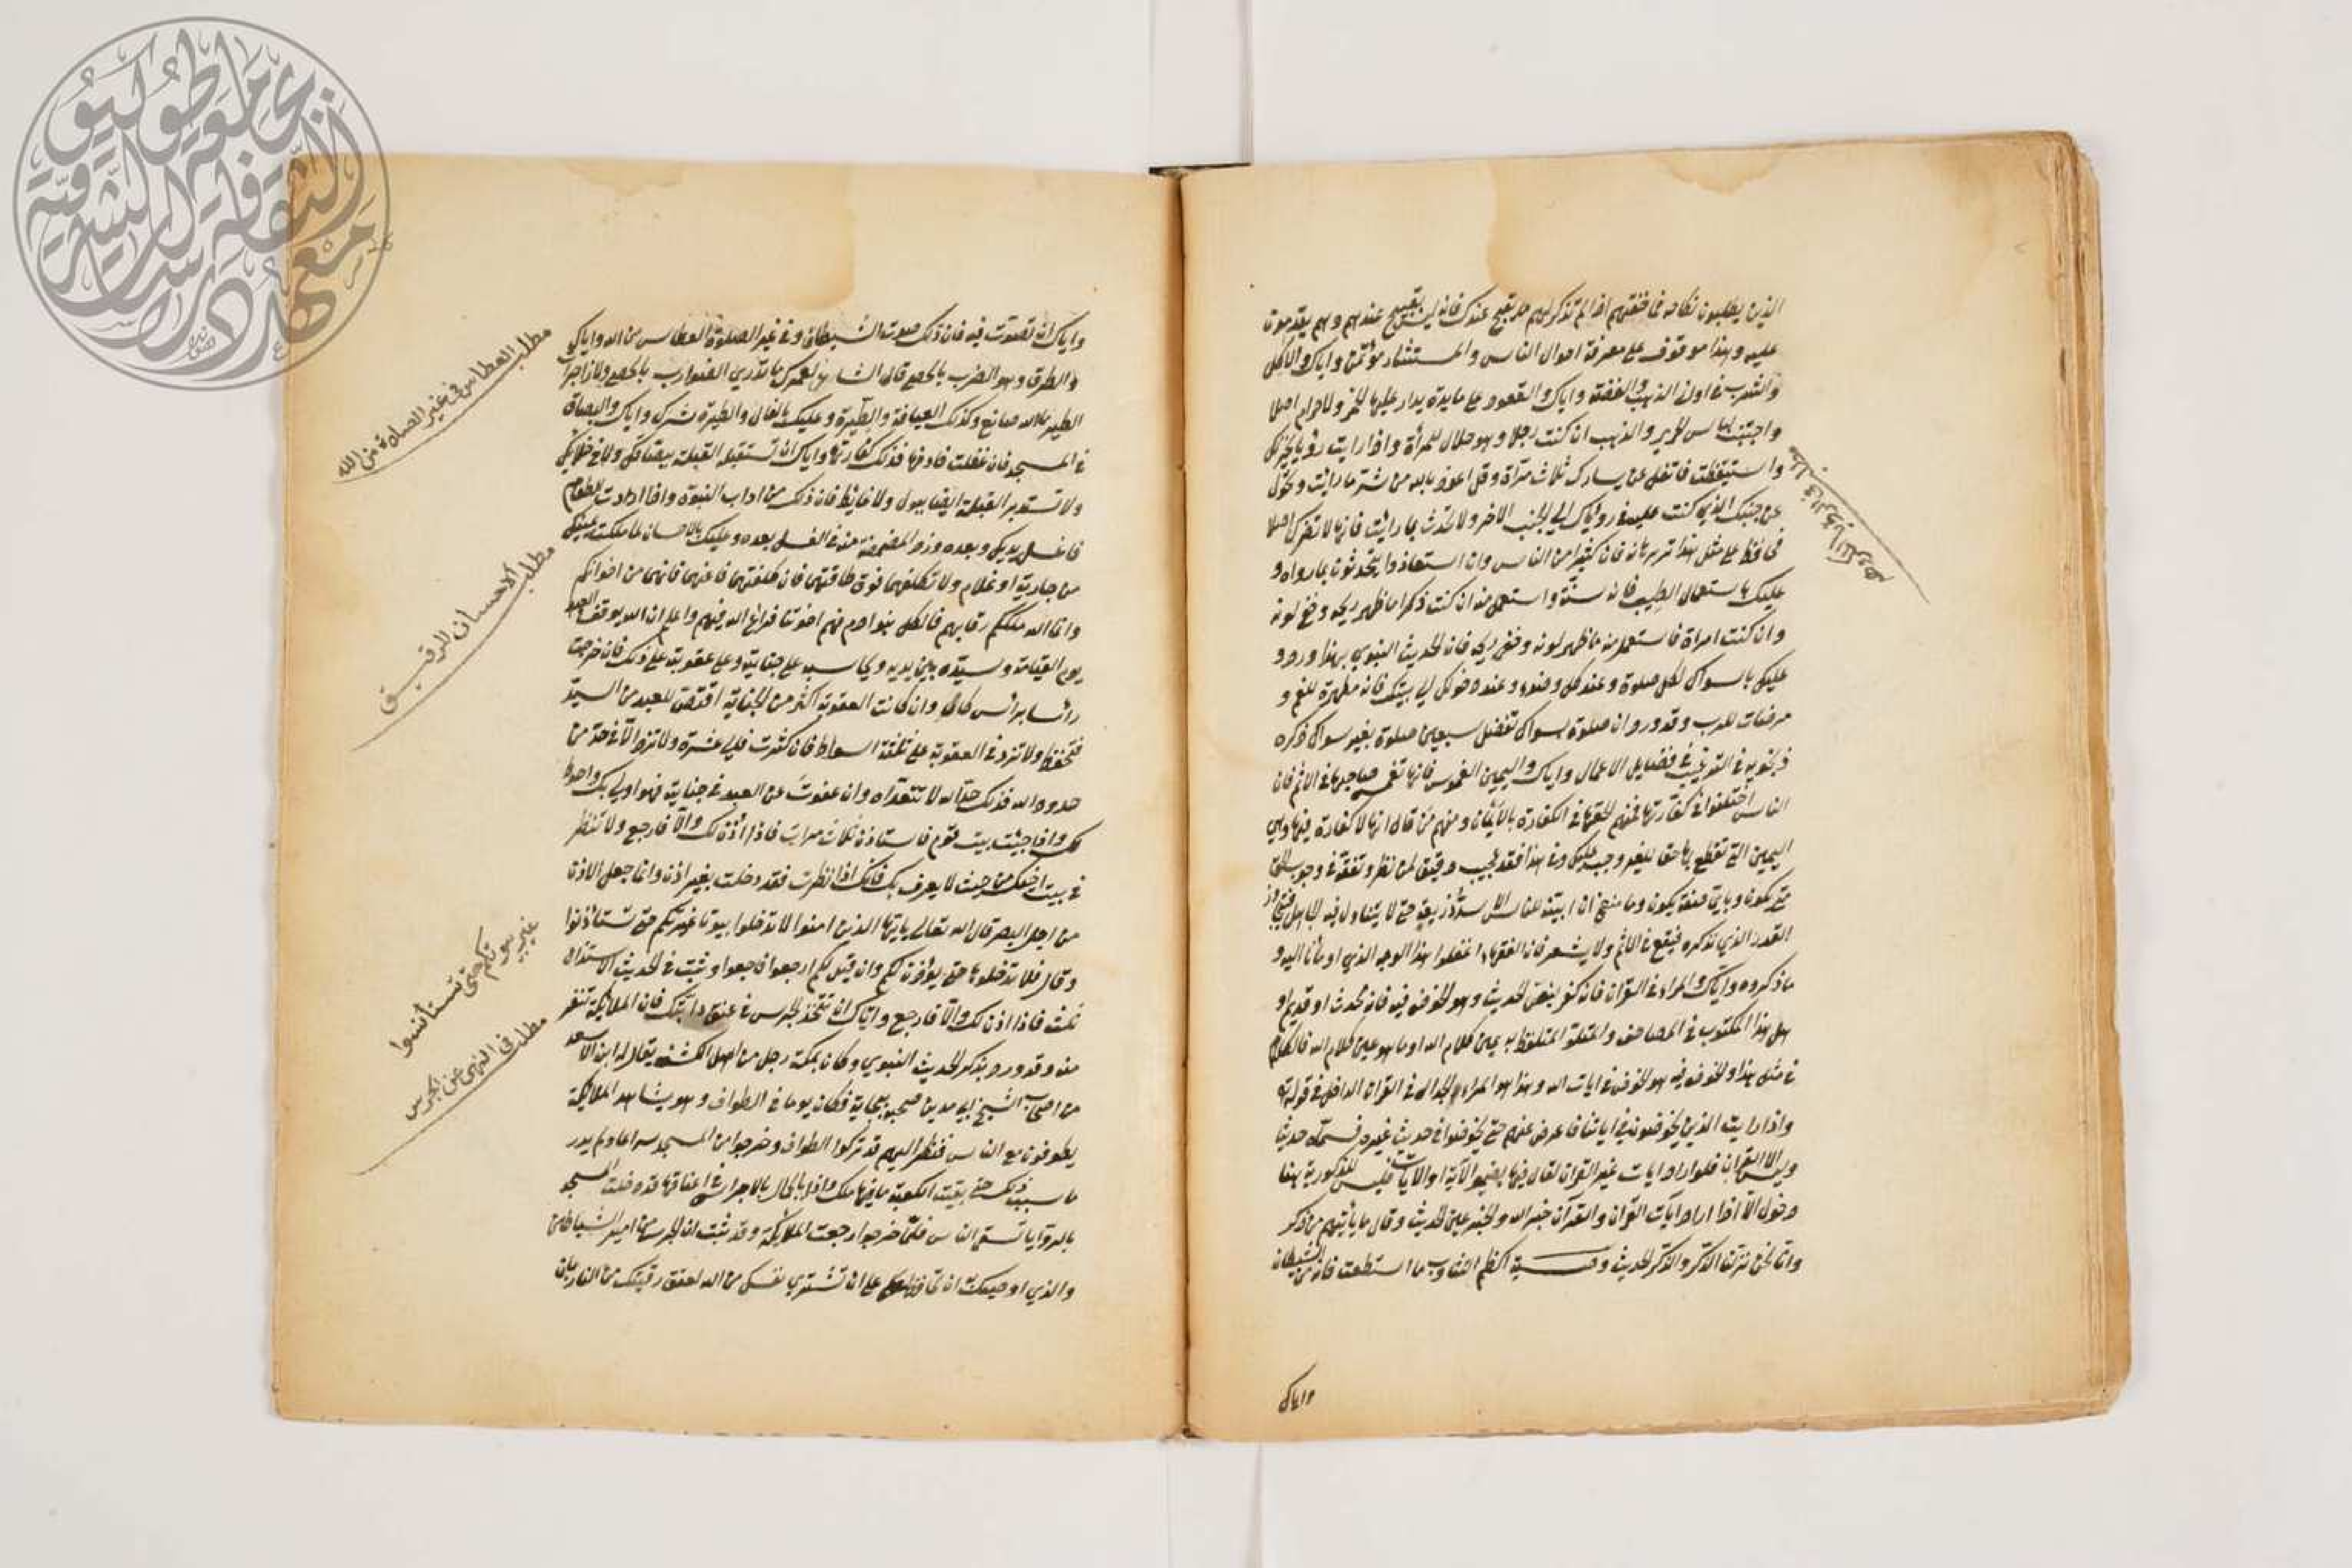 الذين يطلبون نكاحه فانتقهم اذا لم تذكر لهم ما يقبح عندك فانه ليس بقبيح عندهم وهم يقدمون
عليه وهذا موقوف على معرفة احوال الناس والمستشار مؤتمن واياك والاكل
والشرب في اواني الذهب والفضة واياك والقعود على مايدة يدار عليها الخمر ولا حرام اصلا
واجتنب لباس الحرير والذهب ان كنت رجلا وهو حلال للمرأة واذا رايت رؤيا تحزنك
واستيقظت فاتفل عن يسارك ثلاث مرّاة وقل اعوذ بالله من شر ما رايت وتحوّل
عن جنبك الذي كنت عليه في روياك الي الجنب الاخر ولا تحدث بما رائيت فانها لا تضرك اصلا
فحافظ على مثل هذا تر برهانه فان كثيرا من الناس وان استعاذوا يتحدثون بما رواه و
عليك باستعمال الطيب فانه سنّة واستعمل منه ان كنت ذكرا ما ظهر ريحه وخفي لونه
وان كنت امراة فاستعمل منه ما ظهر لونه وخفي ريحه فان الحديث النبوي بهذا ورد و
عليك بالسواك لكل صلوة وعند كل وضوء وعند دخولك الي بيتك فانه مطهرة للفم و
مرضات للرب وقد ورد ان صلوة بسواك تفضل سبعين صلوة بغير سواك ذكره
زنجويه في الترغيب في فضايل الاعمال واياك واليمين الغموس فانها تغمس صاحبها في الاثم فان
الناس اختلفوا في كفارتها فمنهم الحقها في الكفارة بالأيمان ومنهم من قال انها لا كفارة فيها وهي
اليمين التي تقطع بها حق للغير وجب عليك وفي هذا فقه عجيب دقيق لمن نظر وتفقه في وجوب الحق
متى يكون وباي صفة يكون وما منعني ان ابينه للناس الا سدّ ذريعة حتى لا يتناول فيه الجاهل فيتجاوز
القدر الذي نذكره فيقع في الاثم ولا يشعر فان الفقهاء اغفلوا هذا الوجه الذي اومأنا اليه و
ما ذكروه واياك والمراء في القران فانه كفر بنص الحديث وهو الخوض فيه فانه محدث او قديم او
هل هذا المكتوب في المصاحف والمتلو المتلفظ به عين كلام الله او ما هو عين كلام الله فالكلام
في مثل هذا والخوض فيه هو الخوض في ايات الله وهذا هو المراء والجدال في القران الداخل في قوله تع
واذا رايت الذين يخوضون في اياتنا فاعرض عنهم حتى يخوضوا في حديث غيره فسمّاه حديثا
وليس الا القران فلو اراد ايات غير القران لقال فيها بضمير الآية او الآيات فليس للذكورية هنا
دخول الا اذا اراد ايات القران والقرآن خبر الله والخبر عين الحديث وقال ما يأتيهم من ذكر
وانا نحن نزلنا الذكر والذكر الحديث وصية اكظم التثاوب ما استطعت فانه من الشيطان
واياك
مطلب في الرؤيا المكروهة
واياك ان تصوّت فيه فان ذلك صوت الشيطان وفي غير الصلوة العطاس من الله واياك
والطرق وهو الضرب بالحصى قال الشاعر لعمرك ما تدري الضوارب بالحصى ولا زاجرا
الطير ما الله صانع وكذلك العيافة والطّيرة وعليك بالفال والطيرة شرك واياك والبصاق
في المسجد فان غفلت فادفنها فذلك كفارتها واياك ان تستقبل القبلة ببصاقك ولا بخلائك
ولا تستدبر القبلة ايضا ببول ولا غايط فان ذلك من اداب النبوة واذا اردت الطعام
فاغسل يديك وبعده وزد المضمضة منه في الغسل بعده وعليك بالاحسان لما ملكت يمينك
من جارية او غلام ولا تكلفهما فوق طاقتهما فان كلفتهما فاعنهما فانهما من اخوانكم
وانما الله ملككم رقابهم فالكل بنو ادم فهم اخوتنا فراع الله فيهم واعلم ان الله يوقف العبد
يوم القيامة وسيّده بين يديه ويحاسبه على جنايته وعلى عقوبته على ذلك فان خرجت
رأسا برأس كان وان كانت العقوبة اكثر من الجناية اقتصّ للعبد من السيّد
فتحفظ ولا تزد في العقوبة على ثلاثة اسواط فان كثرت فالي عشرة ولا تزد الا في حد من
حدود الله فذلك حدّ الله لا تتعدّاه وان عفوت عن العبد في جنايته فهو اولى بك واحوط
لك واذا جئت بيت قوم فاستاذن ثلاث مرات فاذا اذن لك والا فارجع ولا تنظر
في بيت اخيك من حيث لا يعرف بك فانك اذا نظرت فقد دخلت بغير اذن وانما جعل الاذن
من اجل البصر قال الله تعالى ياايها الذين امنوا لا تدخلوا بيوتا غير بيوتكم حتى تستأذنوا
وقال فلا تدخلوها حتى يؤذن لكم وان قيل لكم ارجعوا فارجعوا وثبت في الحديث الاستيذان
ثلث فاذا اذن لك والا فارجع واياك ان تتخذ الجرس في عنق دابتك فان الملايكة تنفر
منه وقد ورد بذكر الحديث النبوي وكان بمكة رجل من اهل الكشف يقال له ابن الاسعد
من اصحاب الشيخ ابي مدين صحبه ببجاية فكان يوما في الطواف وهو يشاهد الملايكة
يطوفون مع الناس فنظر اليهم قد تركوا الطواف وخرجوا من المسجد سراعا ولم يدر
ما سبب ذلك حتى بقيت الكعبة ما فيها ملك واذا بالجمال بالاجراس في اعناقها قد دخلت المسجد
بالروايا تسقي الناس فلمّا خرجوا رجعت الملائكة وقد ثبت ان الجرس مزامير الشياطين
والذي اوصيك به ان تحافظ على ان تشتري نفسك من الله لعتق رقبتك من النار بان
مطلب العطاس في غير الصلاة من الله
مطلب الاحسان للرقيق
غير بيوتكم حتى تستأنسوا
مطلب في النهي عن الجرس